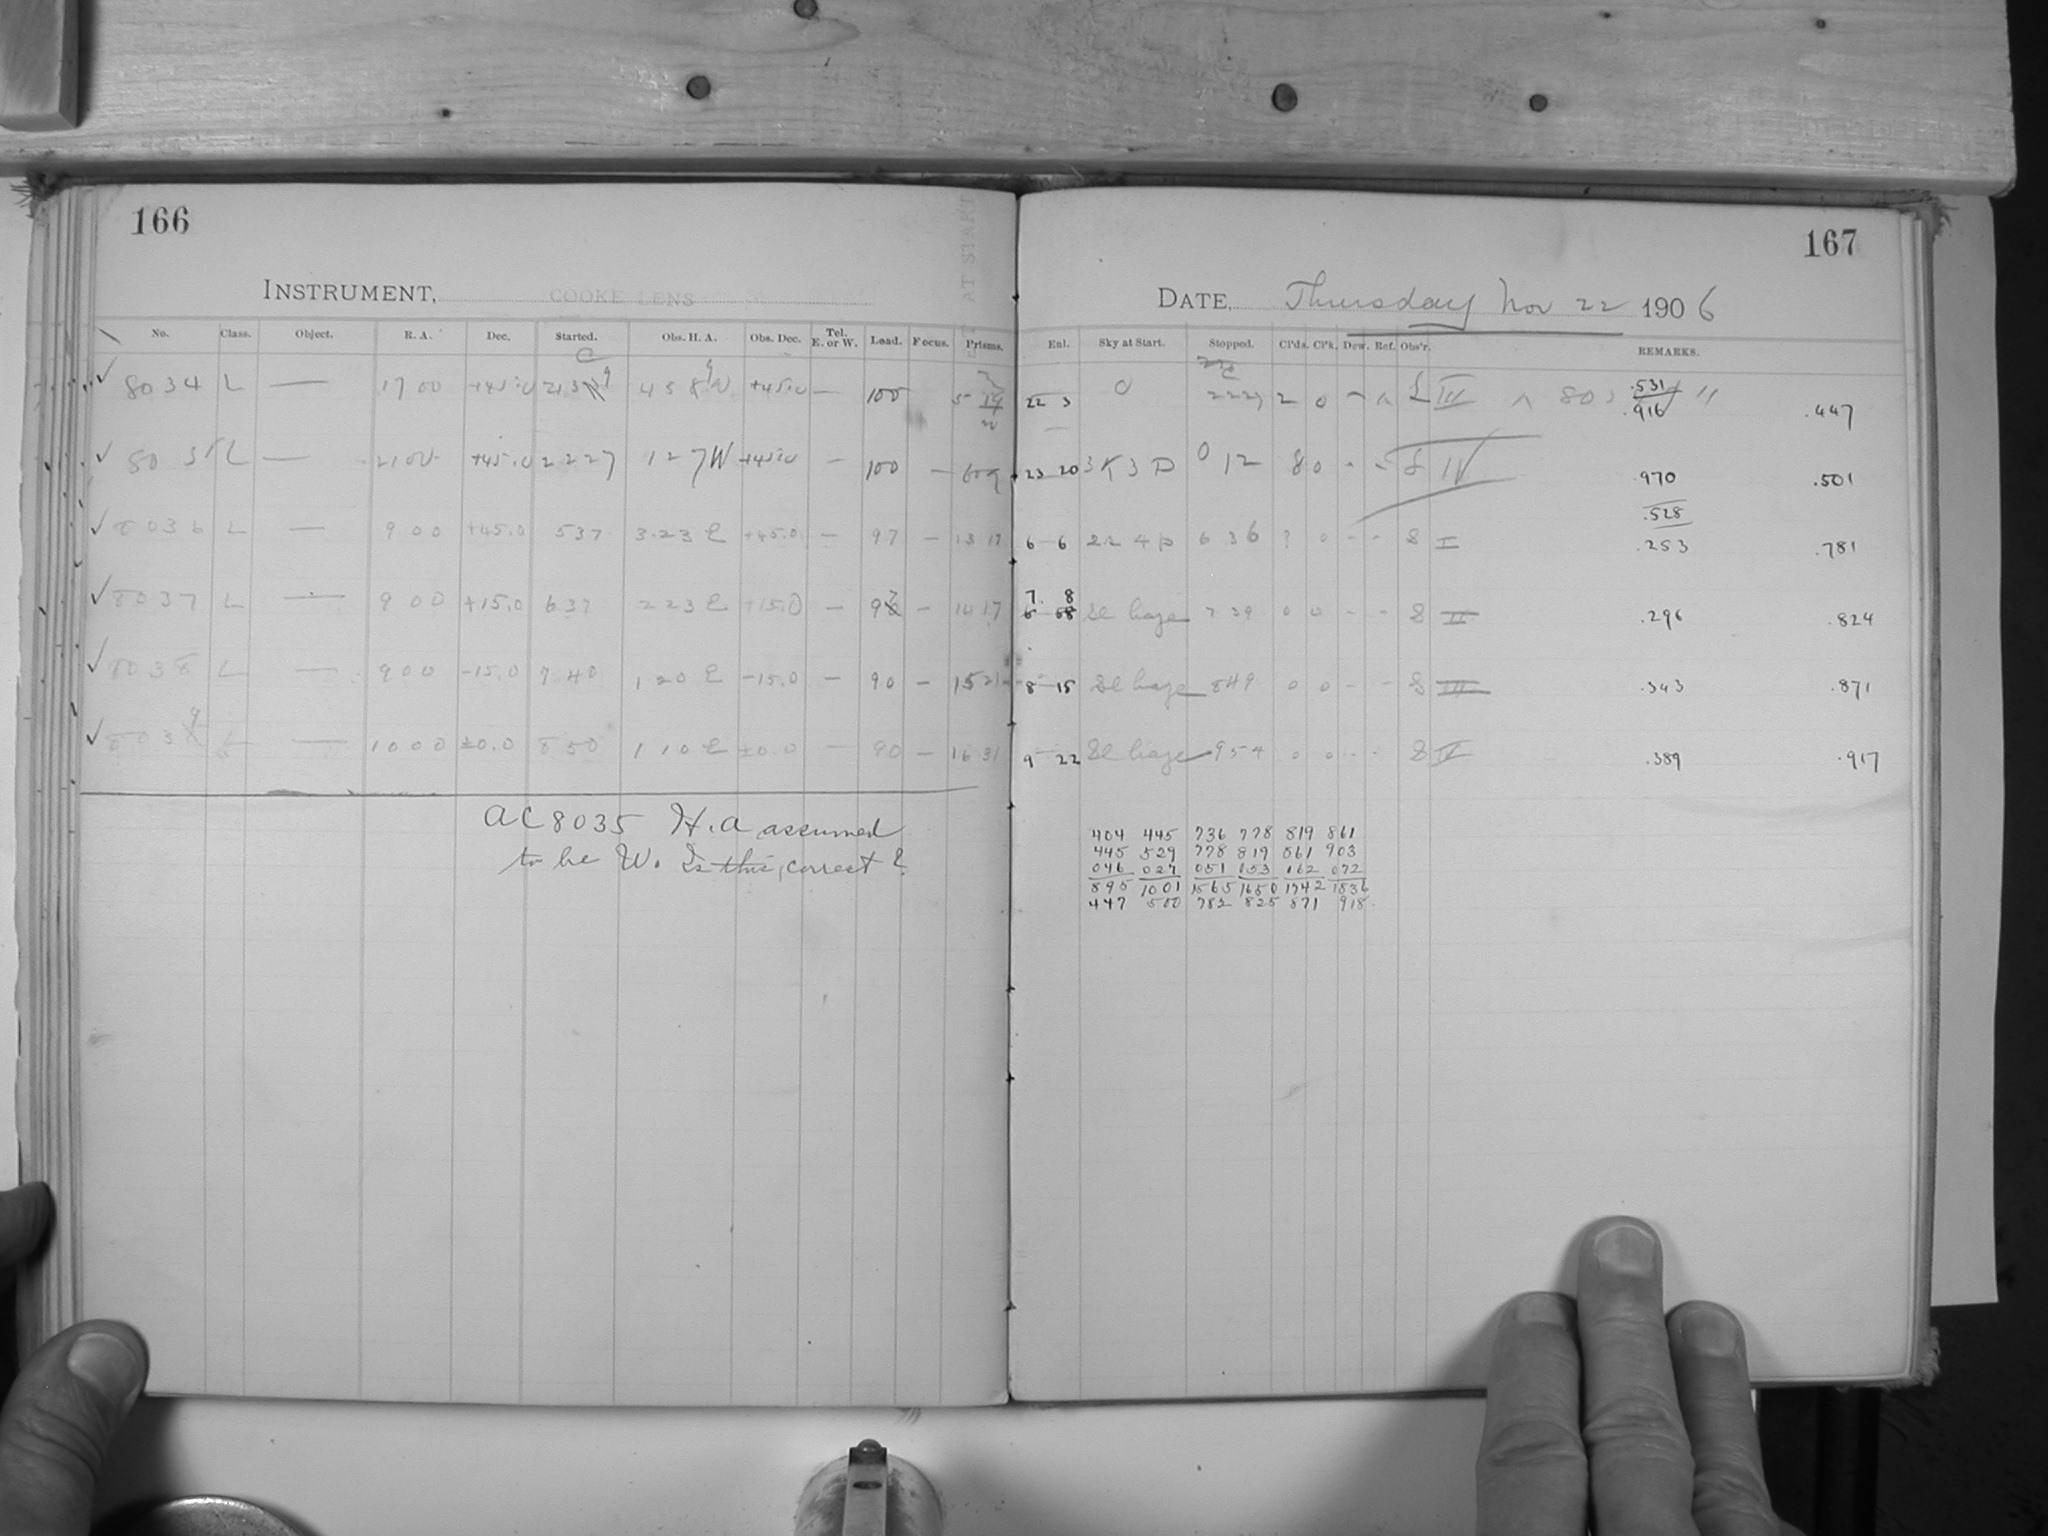 166
167
INSTRUMENT, COOKE LENS
DATE, Thursday Nov 22 1906
No. Class. Object. R. A. Dec. Started. Obs. H. A. Obs. Dec. Tel. E. or W. Lead. Focus. Prisms. Enl. Sky at Start. Stopped. Cl'ds. Cl'k. Dew. Ref. Obs'r. REMARKS.
8034 L — 17 00 +45.0 +45.0 — 100 22 3 0 2227 2 0 III .531 .916 .447
8035 L — 21 00 +45.0 2227 127W +45.0 — 100 — 23 20 0 12 8 0 - - IV .970 .501
8036 L — 9 00 +45.0 537 3.23 E +45.0 — 97 — 13 17 6 6 636 ? 0 - - S I .528 .253 .781
8037 L — 9 00 +15.0 637 2 23 E +15.0 — — 14 17 7 8 Sl haze 739 0 0 - - S II .296 .824
8038 L — 9 00 -15.0 7 40 1 20 E -15.0 — 90 — 15 21 8 15 Sl haze 849 0 0 - - S III .343 .871
8039 L — 10 00 ±0.0 8 50 1 10 E ±0.0 — 90 — 16 31 9 22 Sl haze 954 0 0 - - S IV .389 .917
AC 8035 H.A assumed
to be W. Is this correct?
404 445 736 778 819 861
445 529 778 819 861 903
046 027 051 053 062 072
895 1001 1565 1650 1742 1836
447 500 782 825 871 918